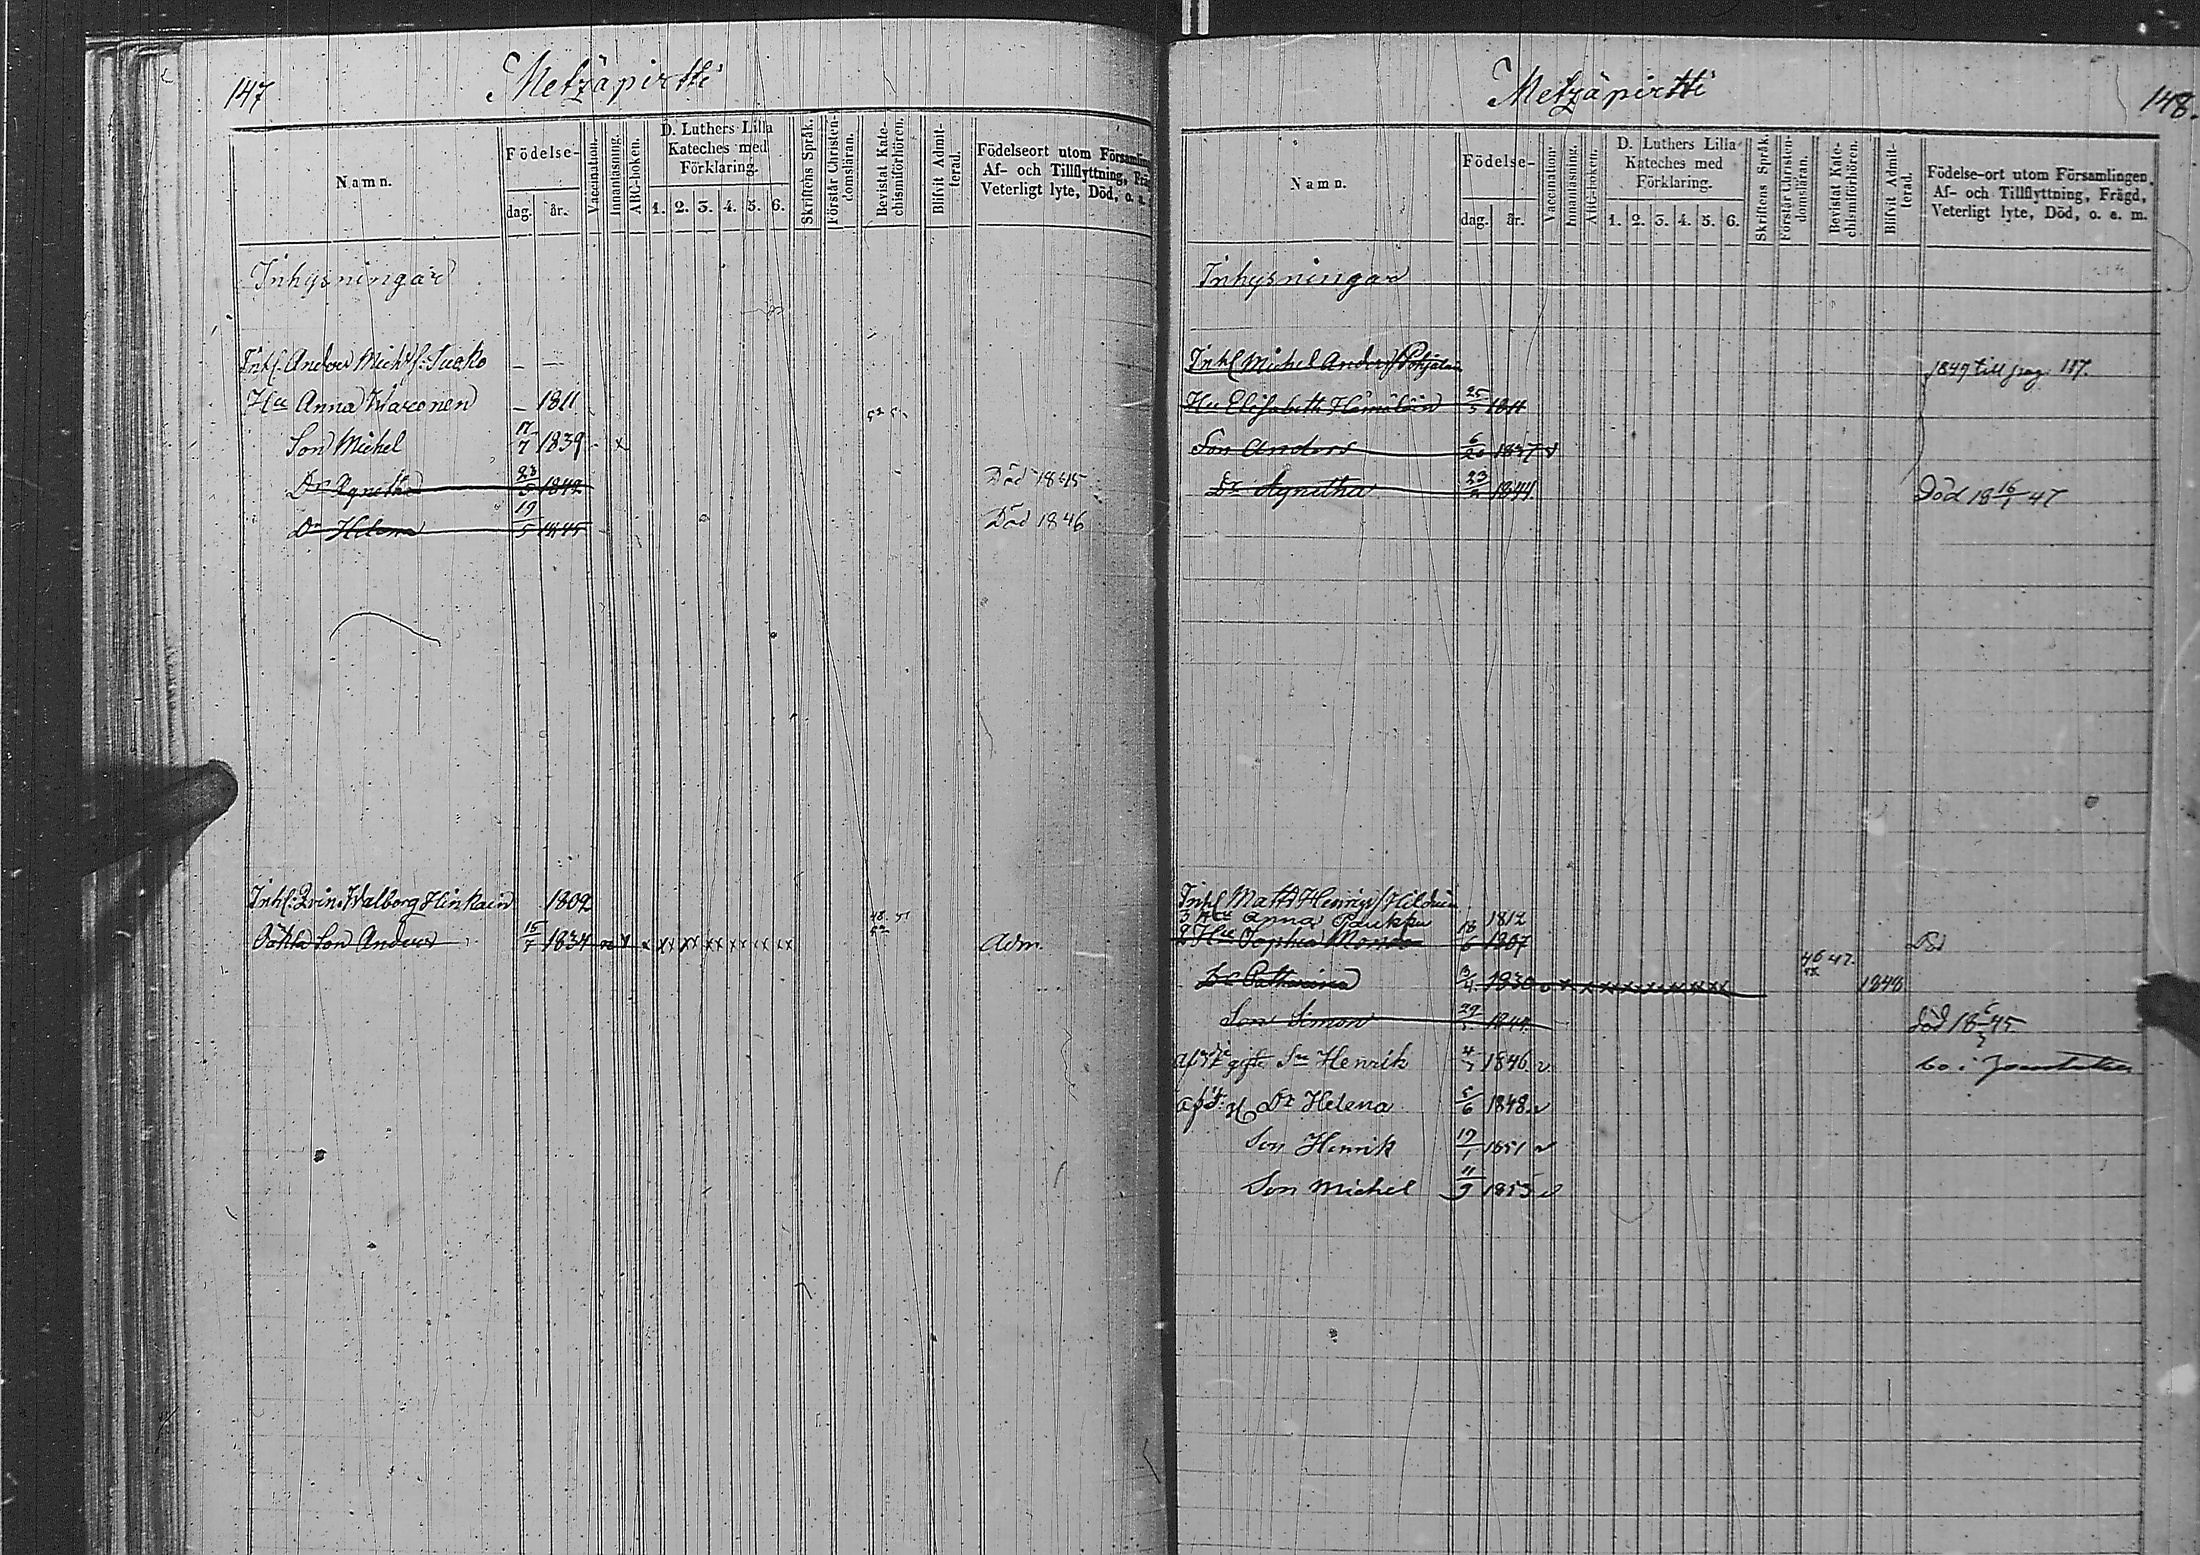 147
Metzäpirtti
Namn.
Födelse-
dag.
år.
Vaccination.
Innanläsning.
ABC-boken.
D. Luthers Lilla
Kateches med
Förklaring.
1. 2. 3. 4. 5. 6.
Skriftens Språk.
Förstår Christen-
domsläran.
Bevistat Kate-
chismiförhören.
Blifvit Admit-
terad.
Födelseort utom Församling
Af- och Tillflyttning,
Veterligt lyte, Död, o. a.
Inhysningar
Inh. Anders Suako - -
Hu Anna - 1811
Son Michel 17/7 1839 x
Dr Agnetha 23/5 1842 Död 1845
Dr Helena 19/5 1845 Död 1846
Inh: Walborg Hinkain 1802
Son Anders 15/7 1834 Adm.
Metzäpirtti
148.
Namn.
Födelse-
dag.
år.
Vaccination.
Innanläsning.
ABC-boken.
D. Luthers Lilla
Kateches med
Förklaring.
1. 2. 3. 4. 5. 6.
Skriftens Språk.
Förstår Christen-
domsläran.
Bevistat Kate-
chismiförhören.
Blifvit Admit-
terad.
Födelse-ort utom Församlingen,
Af- och Tillflyttning, Frägd,
Veterligt lyte, Död, o. a. m.
Inhysningar
Inh Michel Anders 1849 till pag. 117.
Hu Elisabeth 25/5 1811
Son Anders 1837
Dr Agnetha 1844 Död 18 16/1 47
Inh Matts Henrics
3 Hu Anna Paukku 1812
2 Hu Sophia 18/6 1807
Dr Catharina 3/4 1830 46 47. 1848
Son Simon 1844 död 18 45
gift Sn Henrik 1846 bo i
Dr Helena 5/6 1848
Son Henrik 17/1 1851
Son Michel 11/9 1853